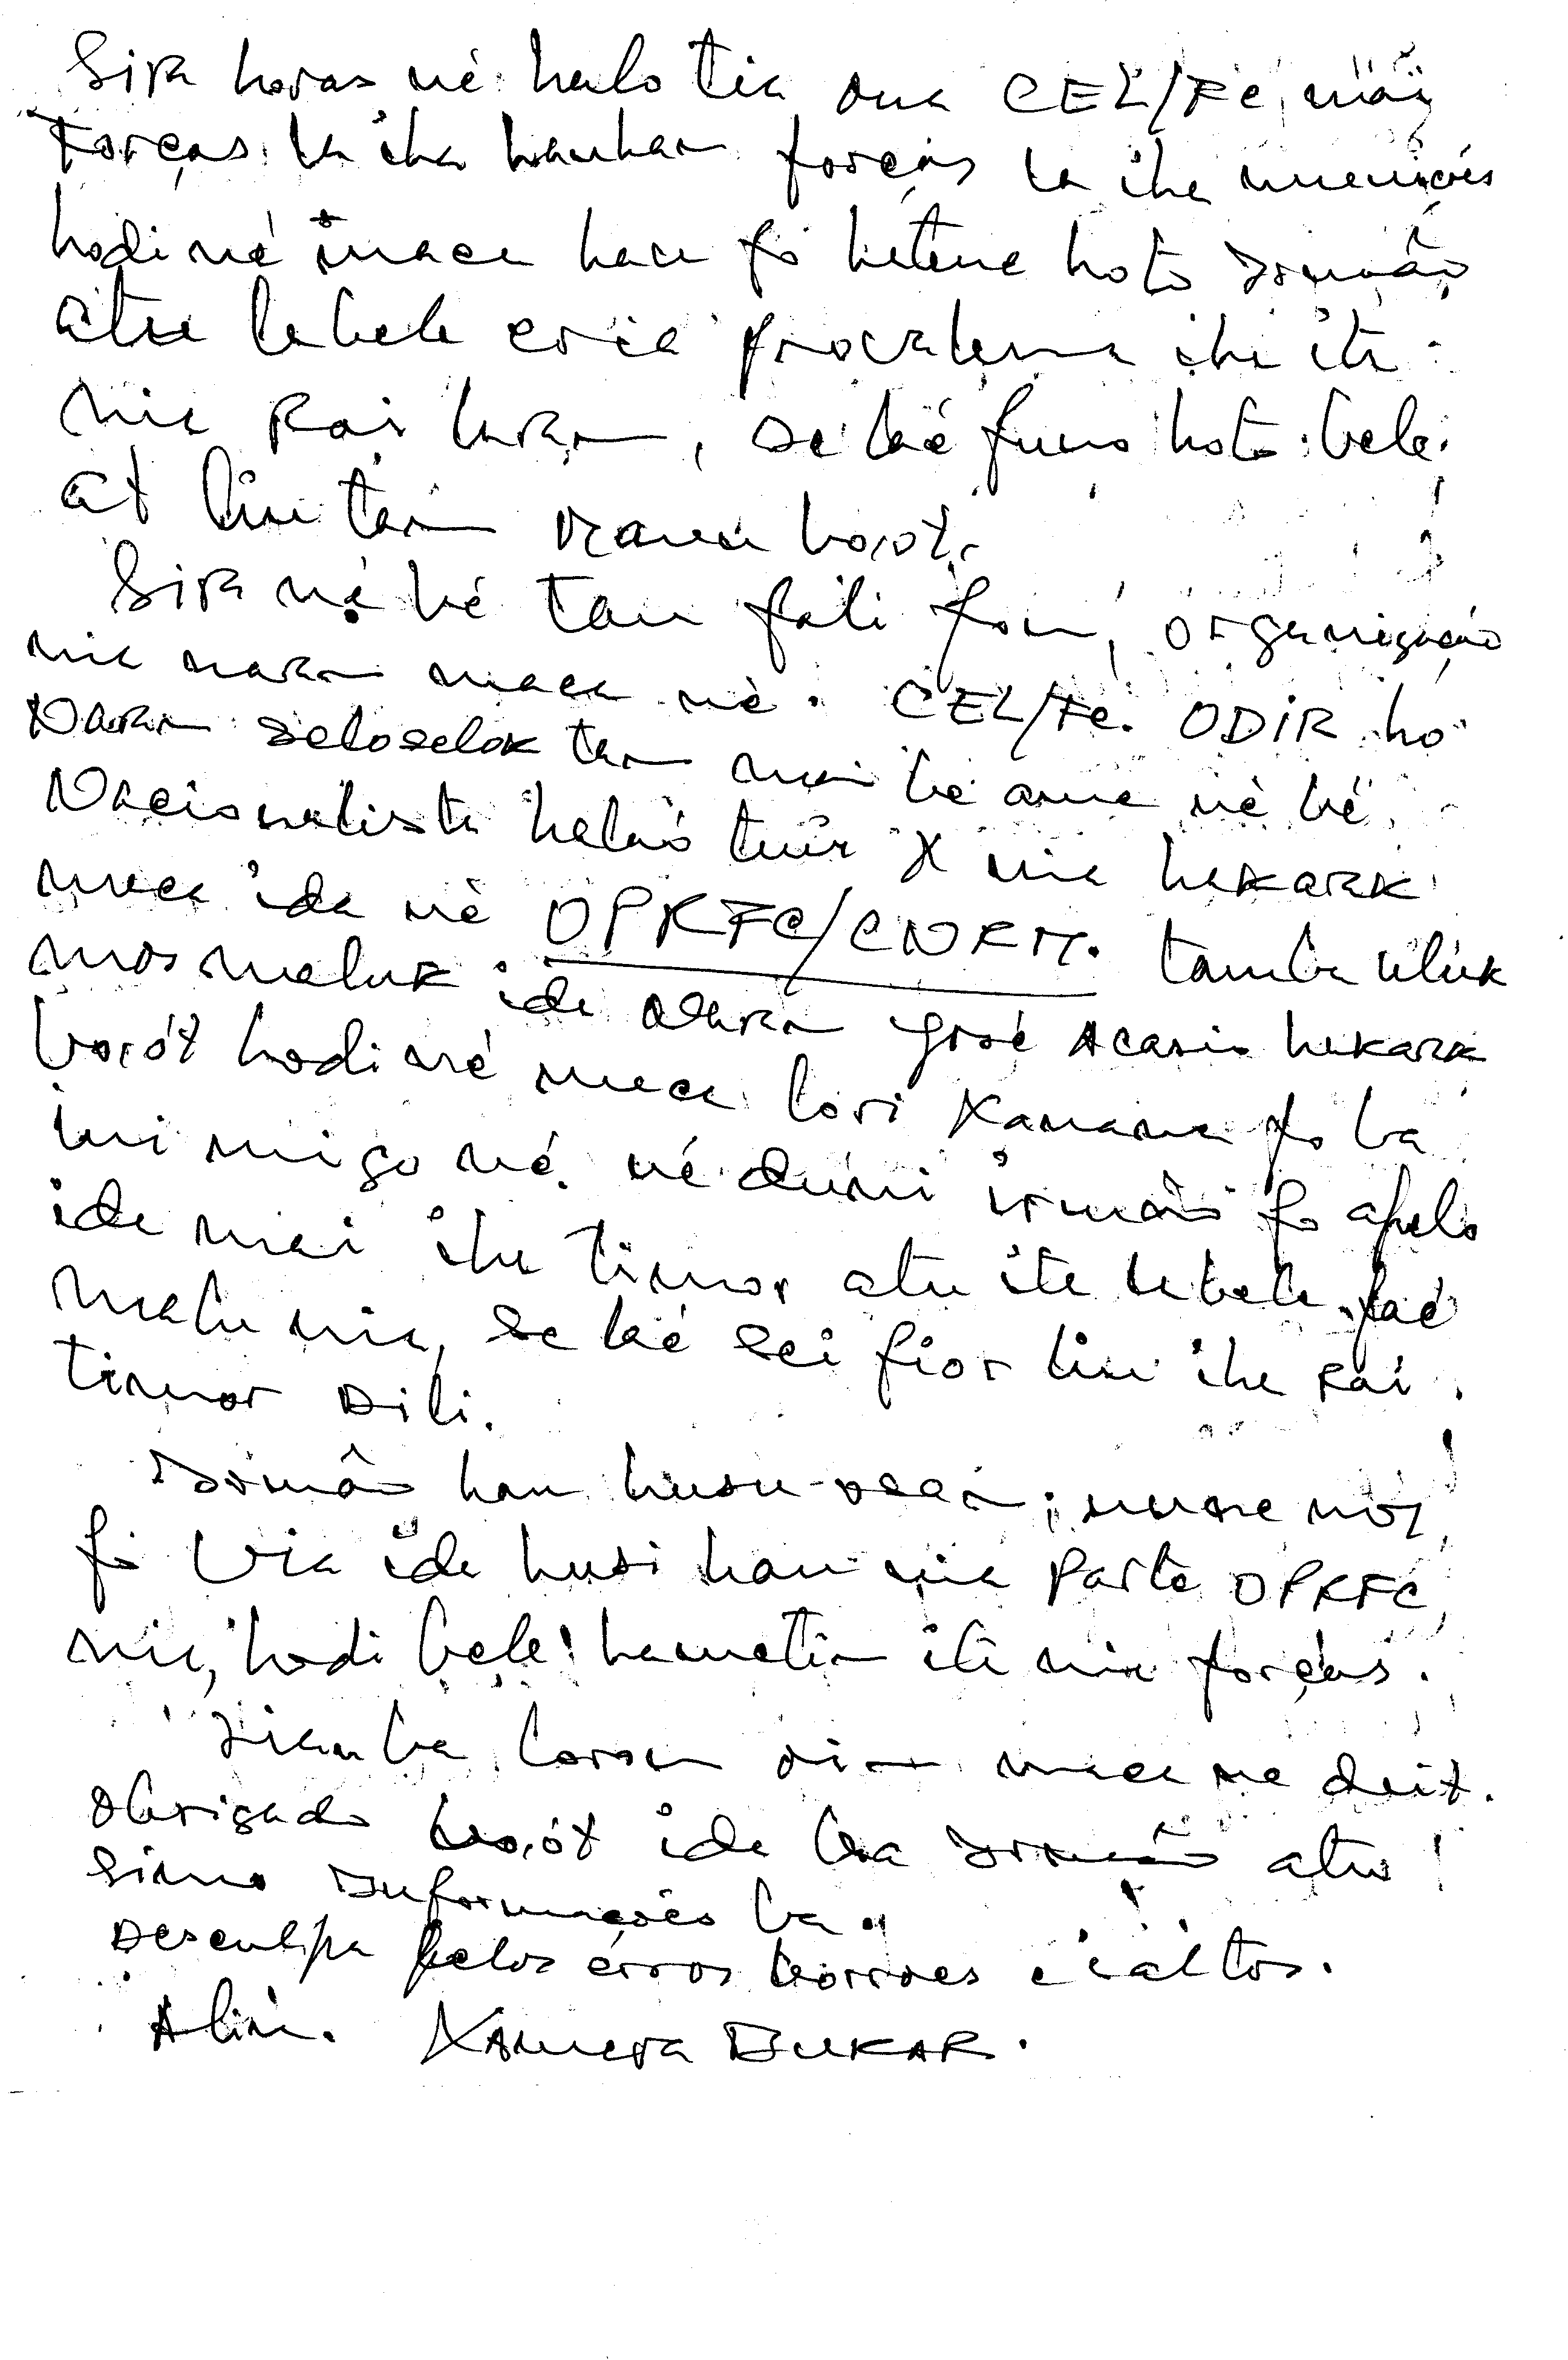 Sira horas né halo tia ona CEL/Fé, mái
Forças la iha hanhan forças la iha munições
hodi né maca hau fó hatene hotó Irmão
atu labele cria provalema iha ita
nia Rai laran, se laé funo hotó bele
at liu tan manu boót.
Sira né bé tau fali foin, organização
nia naran maca né. CEL/Fé. ODIR ho
Naran seloselok tan mai be ami né bé
Nacionalista helaó tuir X nia hakarak
maca ida né OPRFC/CNRM. tamba uluk
mos maluk ida naran José Acasio hakarak
boót hodi né maca lori Xanana fó ba
inimigo né. né duni irmão fó apelo
ida mai iha timor atu ita labele faé
malu nia, se laé sei fior liu iha Rai
timor Dili.
Irmão hau husu-dean; nune mos
fó Via ida husi hau nia Parte OPRFC
nia, hodi bele hametin ita nia forças.
Lian ba loron oin maca ne deit.
Obrigado boót ida ba Irmão atu
simo Informações ba.
Desculpa pelos érros borroes e iáltos.
Alin. XAmera BUKAR.